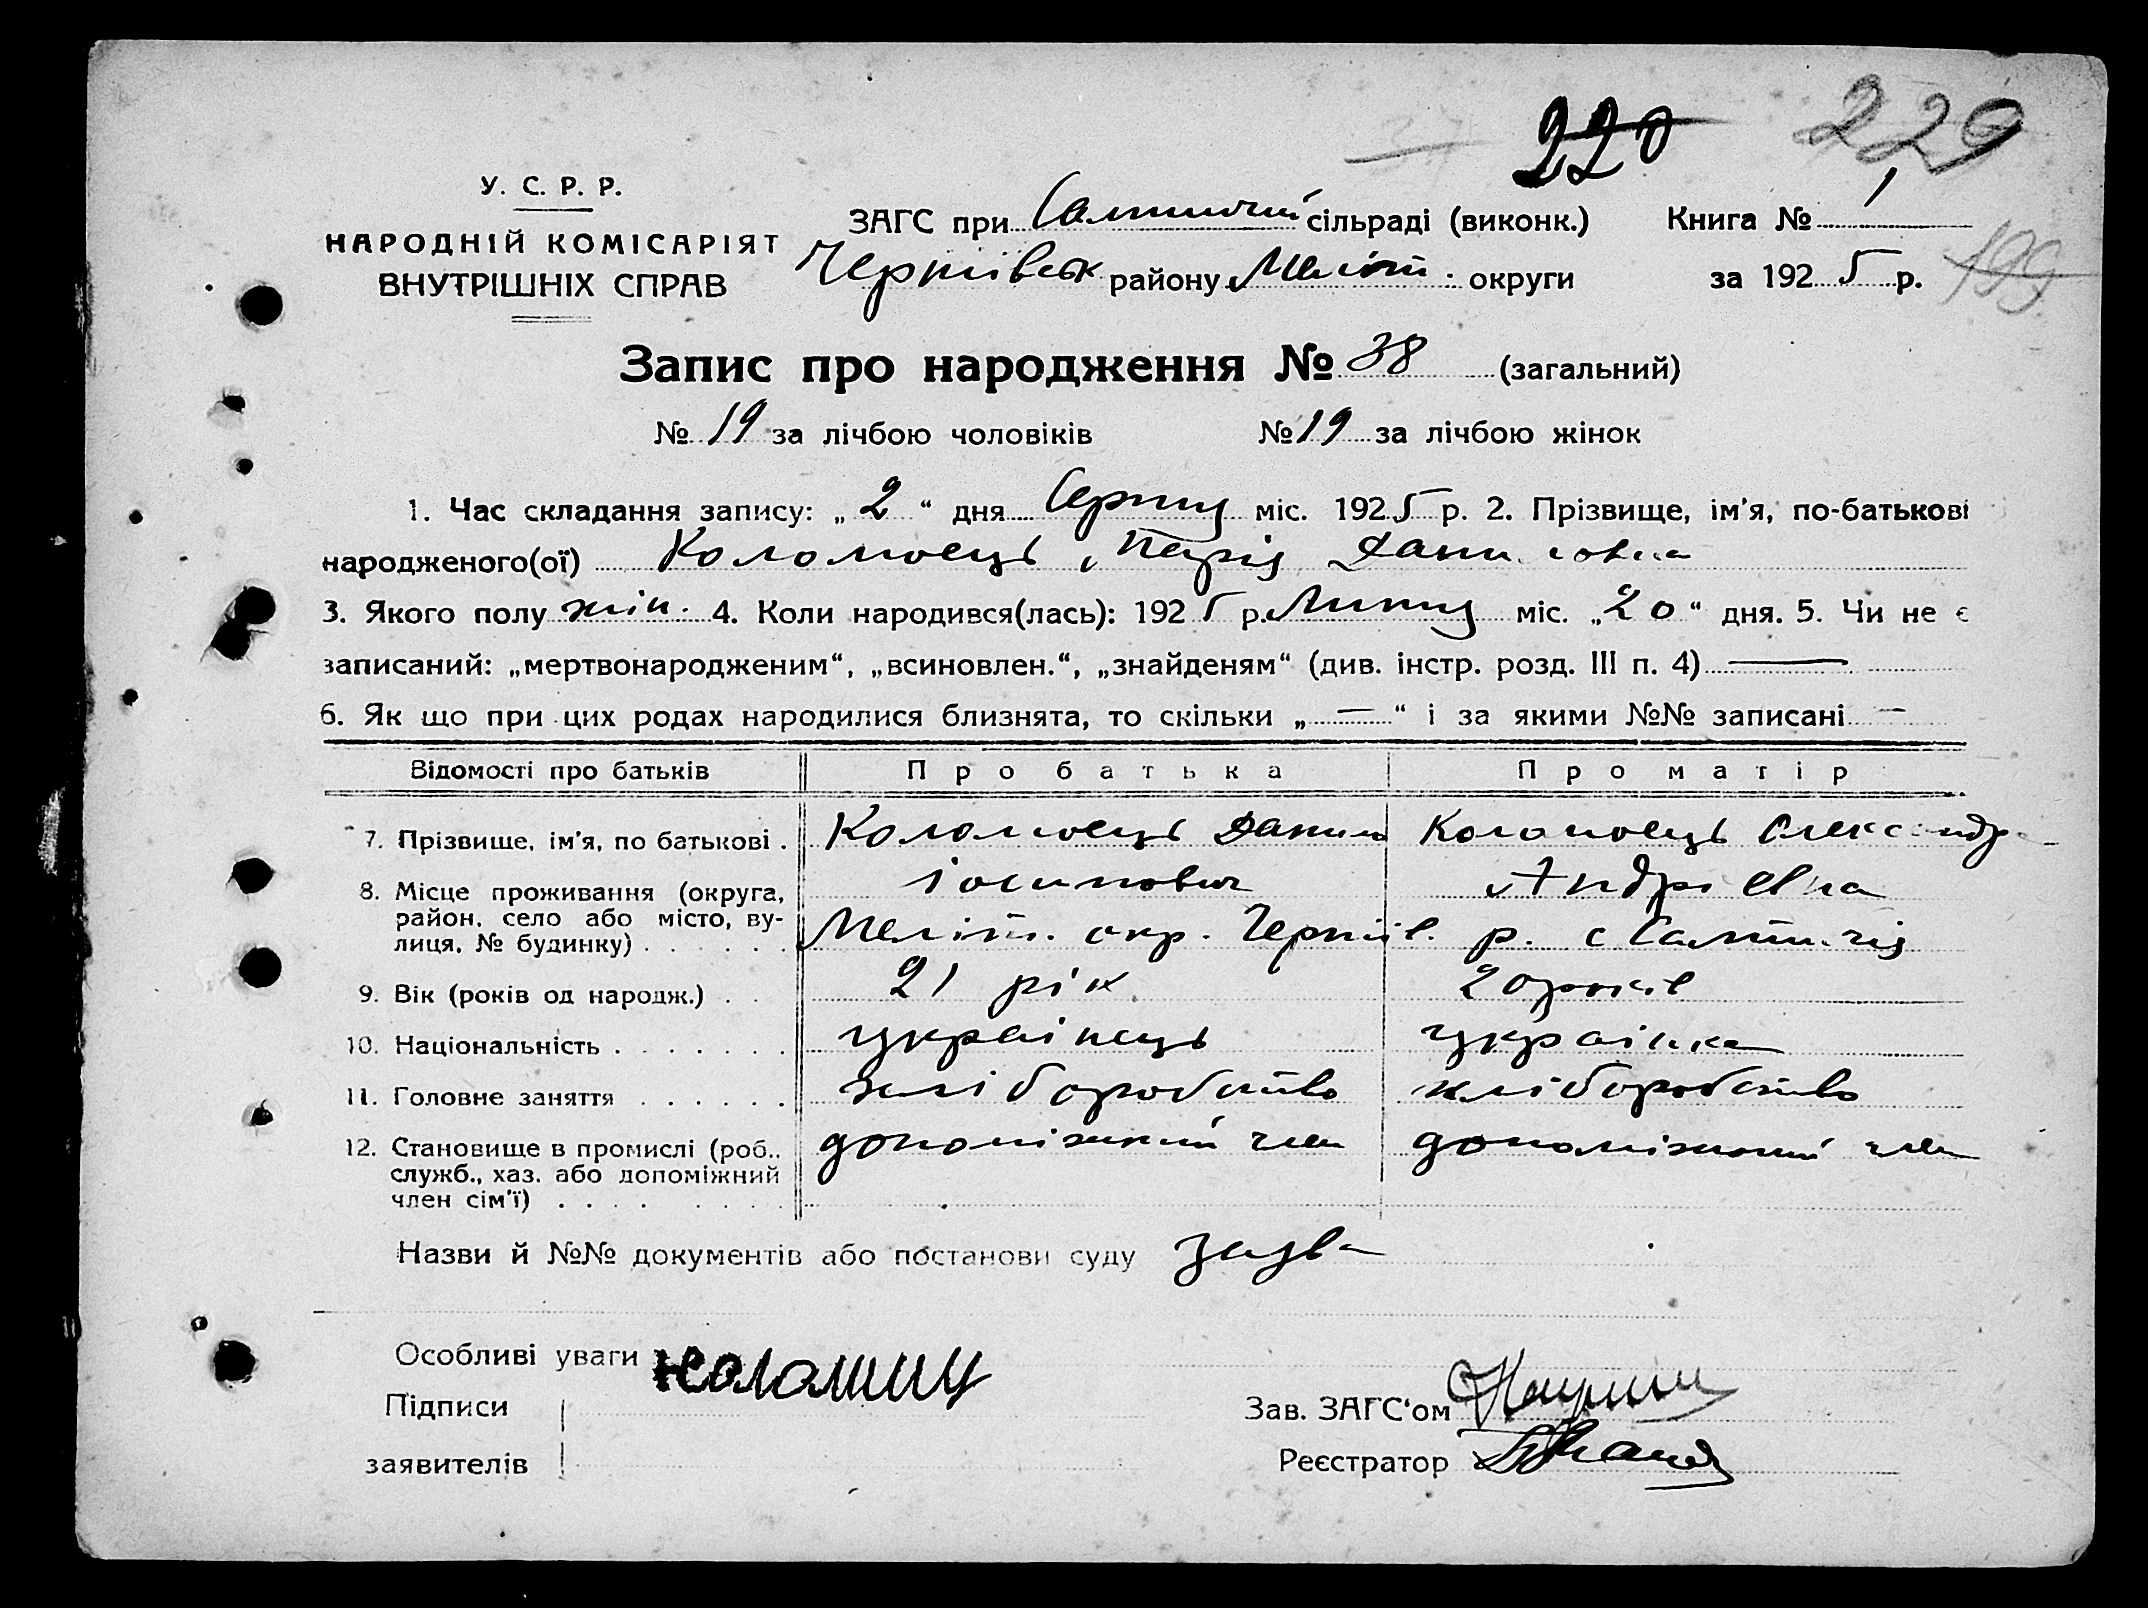 220 229
У. С. Р. Р.
ЗАГС при Салтичій сільраді (виконк.) Книга № 1
НАРОДНІЙ КОМІСАРІЯТ
ВНУТРІШНІХ СПРАВ
Чернівськ району Меліт. округи за 1925 р. 199
Запис про народження № 38 (загальний)
№ 19 за лічбою чоловіків № 19 за лічбою жінок
1. Час складання запису: „2“ дня Серпня міс. 1925 р. 2. Прізвище, ім'я, по-батькові
народженого(ої) Коломоець Марія Даниловна
3. Якого полу жін. 4. Коли народився(лась): 1925 р. Липня міс. „20“ дня. 5. Чи не є
записаний: „мертвонародженим“, „всиновлен.“, „знайденям“ (див. інстр. розд. III п. 4) —
6. Як що при цих родах народилися близнята, то скільки „—“ і за якими №№ записані —
Відомості про батьків Про батька Про матір
7. Прізвище, ім'я, по батькові . Коломоець Данило Коломоець Олександра
Іосипович Андріевна
8. Місце проживання (округа,
район, село або місто, ву-
лиця, № будинку) . . . . . . Меліт. окр. Чернів. р. с Салтичія
9. Вік (років од народж.) . . 21 рік 20 років
10. Національність . . . . . . . украінець украінка
11. Головне заняття . . . . . . хліборобство хліборобство
12. Становище в промислі (роб., допоміжний член допоміжний член
служб., хаз. або допоміжний
член сім'ї) . . . . . . . .
Назви й №№ документів або постанови суду заява
Особливі уваги
Підписи
заявителів
Зав. ЗАГС'ом
Реєстратор